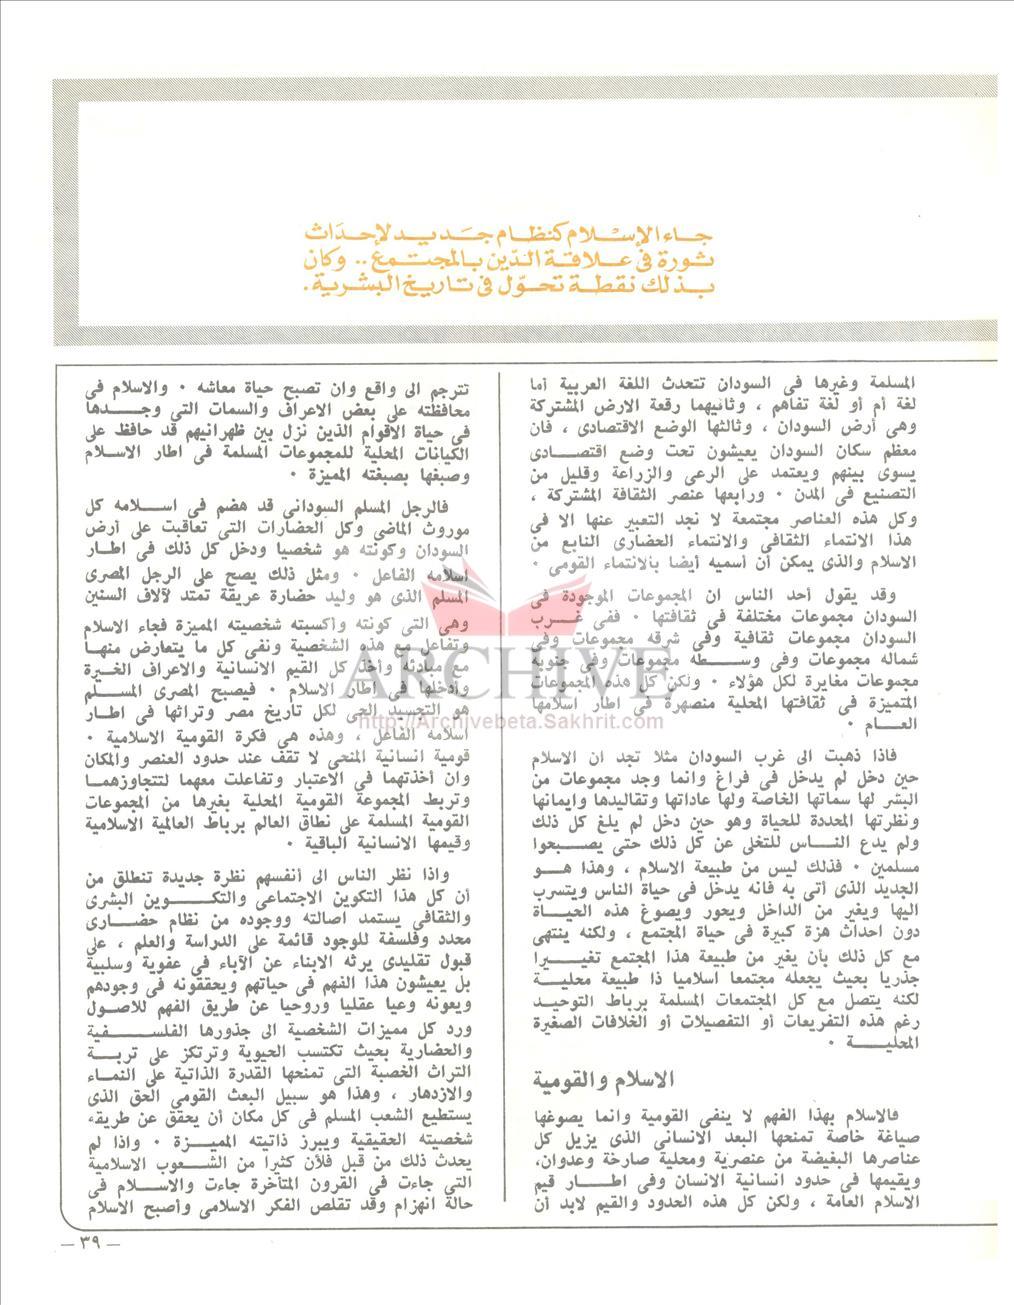 جاء الإسلام كنظام جديد لإحداث
ثورة في علاقة الدّين بالمجتمع .. وكان
بذلك نقطة تحوّل في تاريخ البشرية .
المسلمة وغيرها فى السودان تتحدث اللغة العربية أما
لغة أم أو لغة تفاهم ، وثانيهما رقعة الارض المشتركة
وهى أرض السودان ، وثالثها الوضع الاقتصادى ، فان
معظم سكان السودان يعيشون تحت وضع اقتصادى
يسوى بينهم ويعتمد على الرعى والزراعة وقليل من
التصنيع فى المدن ٠ ورابعها عنصر الثقافة المشتركة ،
وكل هذه العناصر مجتمعة لا نجد التعبير عنها الا فى
هذا الانتماء الثقافى والانتماء الحضارى النابع من
الاسلام والذى يمكن أن أسميه أيضا بالانتماء القومى ٠
وقد يقول أحد الناس ان المجموعات الموجودة فى
السودان مجموعات مختلفة فى ثقافتها ٠ ففى غرب
السودان مجموعات ثقافية وفى شرقه مجموعات وفى
شماله مجموعات وفى وسطه مجموعات وفى جنوبه
مجموعات مغايرة لكل هؤلاء ٠ ولكن كل هذه المجموعات
المتميزة فى ثقافتها المحلية منصهرة فى اطار اسلامها
العام ٠
فاذا ذهبت الى غرب السودان مثلا تجد ان الاسلام
حين دخل لم يدخل فى فراغ وانما وجد مجموعات من
البشر لها سماتها الخاصة ولها عاداتها وتقاليدها وايمانها
ونظرتها المحددة للحياة وهو حين دخل لم يلغ كل ذلك
ولم يدع الناس للتخلى عن كل ذلك حتى يصبحوا
مسلمين ٠ فذلك ليس من طبيعة الاسلام ، وهذا هو
الجديد الذى أتى به فانه يدخل فى حياة الناس ويتسرب
اليها ويغير من الداخل ويحور ويصوغ هذه الحياة
دون احداث هزة كبيرة فى حياة المجتمع ، ولكنه ينتهى
مع كل ذلك بأن يغير من طبيعة هذا المجتمع تغييرا
جذريا بحيث يجعله مجتمعا اسلاميا ذا طبيعة محلية
لكنه يتصل مع كل المجتمعات المسلمة برباط التوحيد
رغم هذه التفريعات أو التفصيلات أو الخلافات الصغيرة
المحلية ٠
الاسلام والقومية
فالاسلام بهذا الفهم لا ينفى القومية وانما يصوغها
صياغة خاصة تمنحها البعد الانسانى الذى يزيل كل
عناصرها البغيضة من عنصرية ومحلية صارخة وعدوان،
ويقيمها فى حدود انسانية الانسان وفى اطار قيم
الاسلام العامة ، ولكن كل هذه الحدود والقيم لابد أن
تترجم الى واقع وان تصبح حياة معاشه ٠ والاسلام فى
محافظته على بعض الاعراف والسمات التى وجدها
فى حياة الاقوام الذين نزل بين ظهرانيهم قد حافظ على
الكيانات المحلية للمجموعات المسلمة فى اطار الاسلام
وصبغها بصبغته المميزة ٠
فالرجل المسلم السودانى قد هضم فى اسلامه كل
موروث الماضى وكل الحضارات التى تعاقبت على أرض
السودان وكونته هو شخصيا ودخل كل ذلك فى اطار
اسلامه الفاعل ٠ ومثل ذلك يصح على الرجل المصرى
المسلم الذى هو وليد حضارة عريقة تمتد لآلاف السنين
وهى التى كونته وأكسبته شخصيته المميزة فجاء الاسلام
وتفاعل مع هذه الشخصية ونفى كل ما يتعارض منها
مع مبادئه وأخذ كل القيم الانسانية والاعراف الخيرة
وأدخلها فى اطار الاسلام ٠ فيصبح المصرى المسلم
هو التجسيد الحى لكل تاريخ مصر وتراثها فى اطار
اسلامه الفاعل ، وهذه هى فكرة القومية الاسلامية ٠
قومية انسانية المنحى لا تقف عند حدود العنصر والمكان
وان أخذتهما فى الاعتبار وتفاعلت معهما لتتجاوزهما
وتربط المجموعة القومية المحلية بغيرها من المجموعات
القومية المسلمة على نطاق العالم برباط العالمية الاسلامية
وقيمها الانسانية الباقية ٠
واذا نظر الناس الى أنفسهم نظرة جديدة تنطلق من
أن كل هذا التكوين الاجتماعى والتكوين البشرى
والثقافي يستمد اصالته ووجوده من نظام حضارى
محدد وفلسفة للوجود قائمة على الدراسة والعلم ، على
قبول تقليدى يرثه الابناء عن الآباء فى عفوية وسلبية
بل يعيشون هذا الفهم فى حياتهم ويحققونه فى وجودهم
ويعونه وعيا عقليا وروحيا عن طريق الفهم للاصول
ورد كل مميزات الشخصية الى جذورها الفلسفية
والحضارية بحيث تكتسب الحيوية وترتكز على تربة
التراث الخصبة التى تمنحها القدرة الذاتية على النماء
والازدهار ، وهذا هو سبيل البعث القومى الحق الذى
يستطيع الشعب المسلم فى كل مكان أن يحقق عن طريقه
شخصيته الحقيقية ويبرز ذاتيته المميزة ٠ واذا لم
يحدث ذلك من قبل فلأن كثيرا من الشعوب الاسلامية
التى جاءت فى القرون المتأخرة جاءت والاسلام فى
حالة انهزام وقد تقلص الفكر الاسلامى وأصبح الاسلام
ARCHIVE
http://Archivebeta.Sakhrit.com
— ٣٩ —